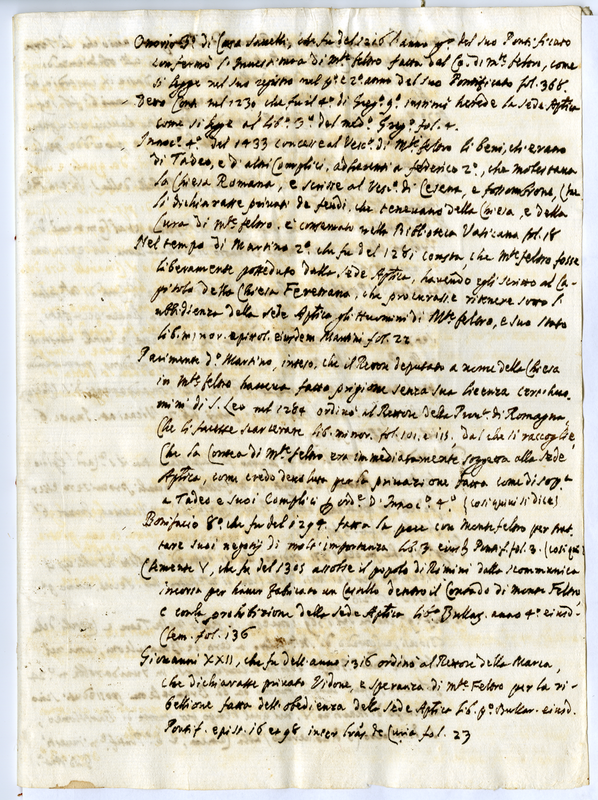 Onorio 3º. di Casa Savelli, che fu del 1216 l'anno pº. del suo Pontificato
confermò l'Investitura di Mte. feltro fatta dal Co. di Mte. feltro, come
si legge nel suo registro nel pº. e 2º. anno del suo Pontificato fol. 368.
Detto Conte nel 1230 che fu il 4º. di Greg.º 9º. instituì herede la Sede Aptica
come si legge al lib.º 3º. del med.º Greg.º fol. 4.
Innoc.º 4º. del 1433 concesse al Vesc.º di Mte. feltro li beni, ch'erano
di Tadeo, e d'altri Complici, adherenti a federico 2º., che molestava
la Chiesa Romana, e scrisse al Vesc.º di Cesena, e fossombrone, che
li dichiarasse privati de feudi, che tenevano della Chiesa, e della
Cura di Mte. feltro. e conservato nella Biblioteca Vaticana fol. 18
Nel tempo di Martino 2º. che fu del 1281 consta, che Mte. feltro fosse
liberamente posseduto dalla Sede Aptica, havendo egli scritto al Ca-
pitolo della Chiesa Feretrana, che procurasse ritenere sotto l'
ubbidienza della Sede Aptica gli Huomini di Mte. feltro, e suo stato
lib. minor. epistol. eiusdem Martini fol. 22
Parimente dº. Martino, inteso, che il Rettor deputato a nome della Chiesa
in Mte. feltro haveva fatto prigione senza sua licenza certi huo-
mini di S. Leo nel 1284 ordinò al Rettore della Prov.ª di Romagna,
che li facesse scarcerare lib. minor. fol. 101. e 113. dal che si raccoglie,
che la Contea di Mte. feltro era immediatamente soggetta alla Sede
Aptica, come credo devoluta per la privazione fatta come di sopª.
a Tadeo e suoi Complici p ord.e D'Innoc.º 4.º (così quivi si dice)
Bonifacio 8º. che fu del 1294. fatta la pace con Montefeltro per trat-
tare suoi negotij di molta importanza lib. 3. eiusd. Pontif. fol. 3. (così qui)
Clemente V, che fu del 1305 assolse il popolo di Rimini dalla scommunica
incorsa per haver fabricato un Castello dentro il Contado di Monte Feltro,
e contro prohibizione della Sede Aptica lib.º Bullar. anno 4º. eiusd-
Clem. fol. 136
Giovanni XXII, che fu dell'anno 1316 ordinò al Rettore della Marca,
che dichiarasse privato Vidone, e Speranza di Mte. Feltro per la ri-
bellione fatta dell'obedienza della Sede Aptica lib. pº. Bullar. eiusd.
Pontif. epist. 16 et 98 inter lras. de Curia fol. 23